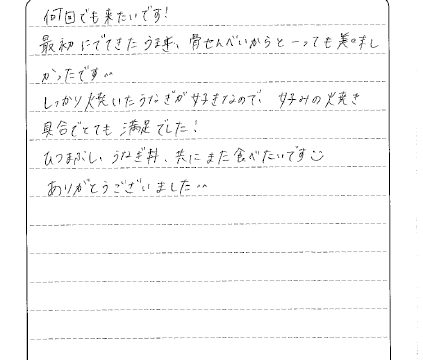 何回でも来たいです!
最初にでてきたうまき、骨せんべいからとーっても美味し
かったです^^
しっかり焼いたうなぎが好きなので、好みの焼き
具合でとても満足でした!
ひつまぶし、うなぎ丼、共にまた食べたいです☺
ありがとうございました^^